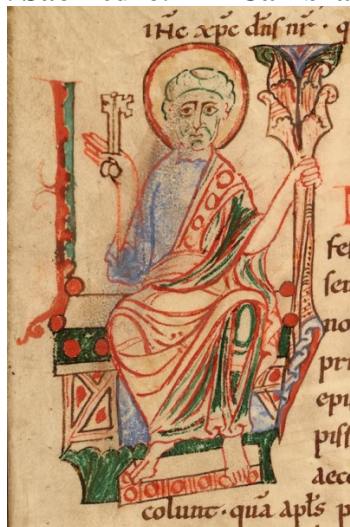 ıHc xp̄c dn̄s nr̄ · q
fe
se
no
pri
epi
piss
aec
colunt · quā apls̄ p